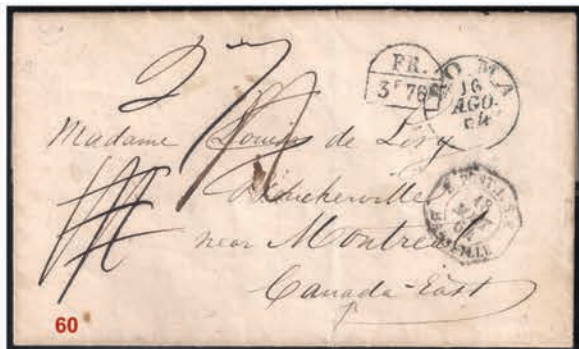 FR.
3F76
ROMA
16
AGO.
64
27
Madame Louisa de Léry
Boucherville
near Montreal
Canada-East
18
60